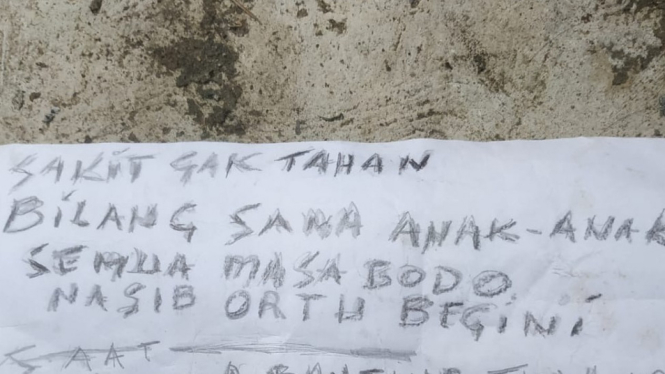 SAKIT GAK TAHAN
BILANG SAMA ANAK-ANAK
SEMUA MASA BODO
NASIB ORTU BEGINI
SAAT